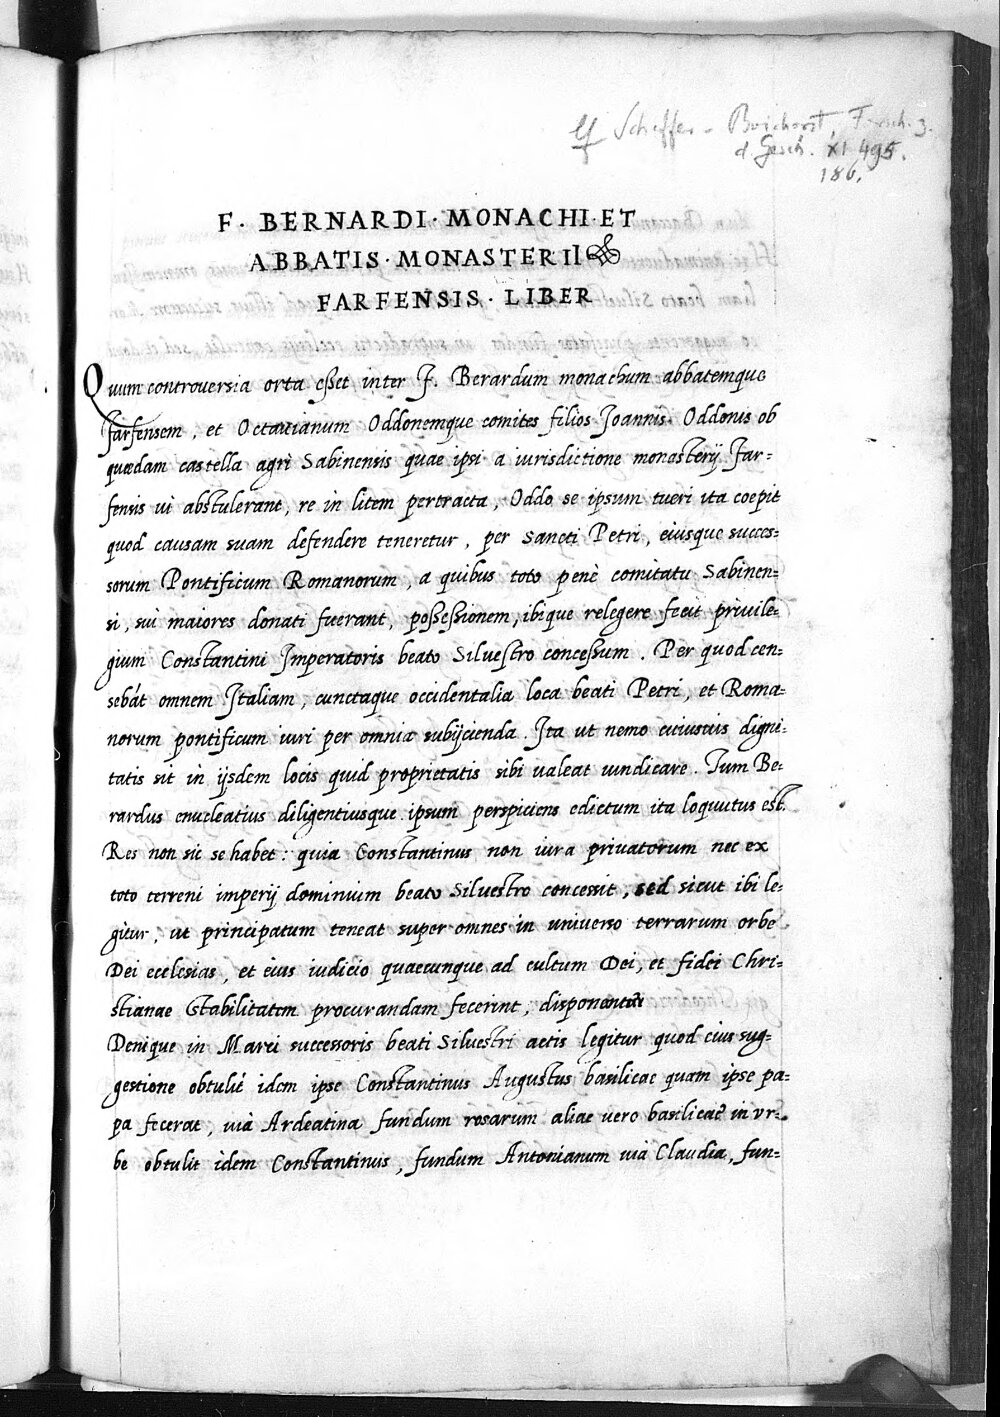 cf Scheffer-Boichorst, Forsch. z.
d Gesch. XI 495.
186.
F. BERNARDI · MONACHI · ET
ABBATIS · MONASTERII
FARFENSIS · LIBER
Quum controversia orta esset inter F. Berardum monachum abbatemque
Farfensem, et Octauianum Oddonemque comites filios Joannis Oddonis ob
quædam castella agri Sabinensis quae ipsi a iurisdictione monasterij Far-
fensis ui abstulerant, re in litem pertracta, Oddo se ipsum tueri ita coepit
quod causam suam defendere teneretur, per Sancti Petri, eiusque succes-
sorum Pontificum Romanorum, a quibus toto penè comitatu Sabinen-
si, sui maiores donati fuerant, possessionem, ibique relegere fecit priuile-
gium Constantini Imperatoris beato Siluestro concessum. Per quod cen-
sebat omnem Italiam, cunctaque occidentalia loca beati Petri, et Roma-
norum pontificum iuri per omnia subijcienda. Ita ut nemo cuiusuis digni-
tatis sit in ijsdem locis quid proprietatis sibi ualeat uindicare. Tum Be-
rardus enucleatius diligentiusque ipsum perspiciens edictum ita loquutus est.
Res non sic se habet: quia Constantinus non iura priuatorum nec ex
toto terreni imperij dominium beato Siluestro concessit, sed sicut ibi le-
gitur, ut principatum teneat super omnes in uniuerso terrarum orbe
Dei ecclesias, et eius iudicio quaecunque ad cultum Dei, et fidei Chri-
stianae stabilitatem procurandam fecerint, disponantur
Denique in Marci successoris beati Siluestri actis legitur quod eius sug-
gestione obtulit idem ipse Constantinus Augustus basilicae quam ipse pa-
pa fecerat, uia Ardeatina fundum rosarum aliae uero basilicae in vr-
be obtulit idem Constantinus, fundum Antonianum uia Claudia, fun-